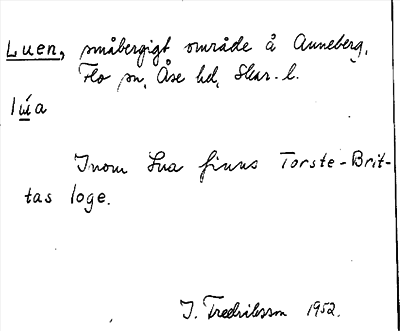 Luen, småbergigt område å Anneberg,
Flo sn, Åse hd, Skar. l.
lúa
Inom Lua finns Torste-Brit-
tas loge.
I. Fredriksson 1952.